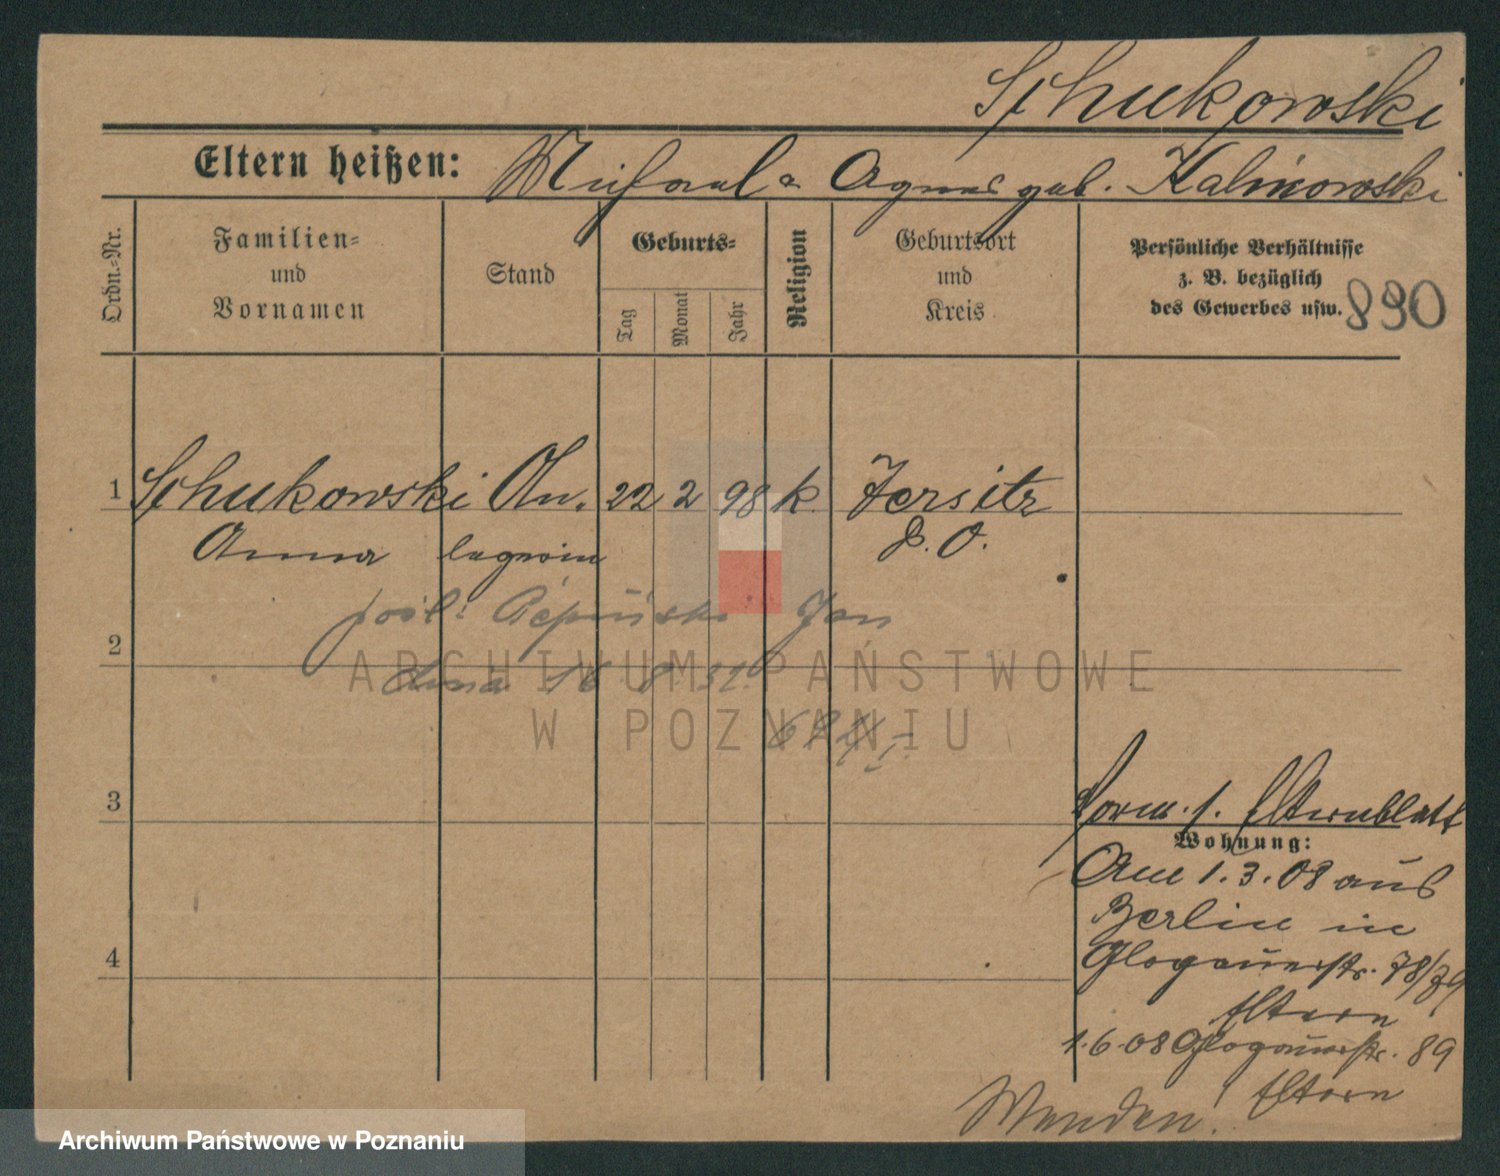 Schukowski
Eltern heißen: Michael u Agnes geb. Kalinowski
Ordn.=Nr.
Familien=
und
Vornamen
Stand
Geburts=
Tag
Monat
Jahr
Religion
Geburtsort
und
Kreis
Persönliche Verhältnisse
z. B. bezüglich
des Gewerbes usw.
890
1 Schukowski An. 22 2 98 k. Jersitz
Anna legerin P. O.
pośl. Jan
2
dnia 16 8 31.
3
Vorm. s. Elternblatt
Wohnung:
Am 1.3.08 aus
Berlin in
Glogauerstr. 78/79
Eltern
4
1.6.08 Glogauerstr. 89
Eltern
Wenden!
ARCHIWUM PAŃSTWOWE
W POZNANIU
Archiwum Państwowe w Poznaniu